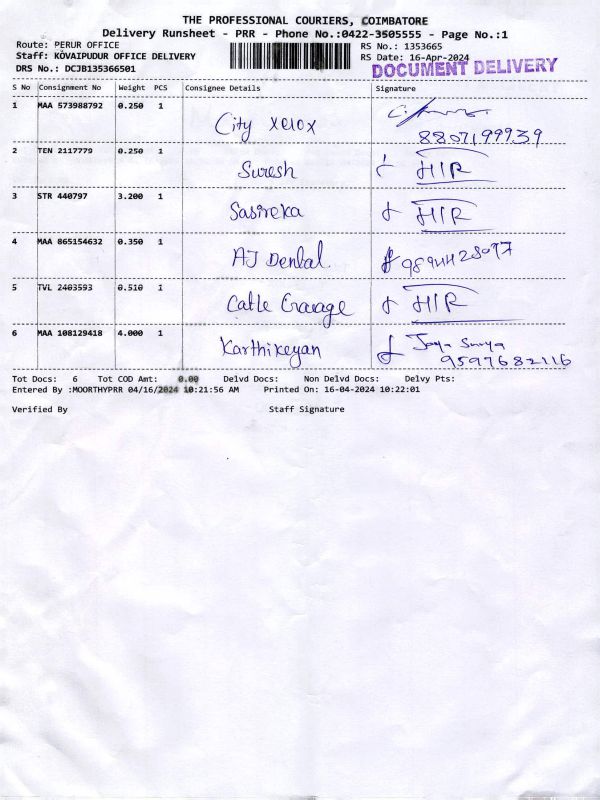 THE PROFESSIONAL COURIERS, COIMBATORE
Delivery Runsheet - PRR - Phone No.:0422-3505555 - Page No.:1
Route: PERUR OFFICE RS No.: 1353665
Staff: KOVAIPUDUR OFFICE DELIVERY RS Date: 16-Apr-2024
DRS No.: DCJB135366501 DOCUMENT DELIVERY
S No Consignment No Weight PCS Consignee Details Signature
1 MAA 573988792 0.250 1 City Xerox 8807199939
2 TEN 2117779 0.250 1 Suresh
3 STR 440797 3.200 1 Sasireka
4 MAA 865154632 0.350 1 AJ Dental
5 TVL 2403593 0.510 1
6 MAA 108129418 4.000 1 Karthikeyan Jaya Surya
9597682116
Tot Docs: 6 Tot COD Amt: 0.00 Delvd Docs: Non Delvd Docs: Delvy Pts:
Entered By :MOORTHYPRR 04/16/2024 10:21:56 AM Printed On: 16-04-2024 10:22:01
Verified By Staff Signature